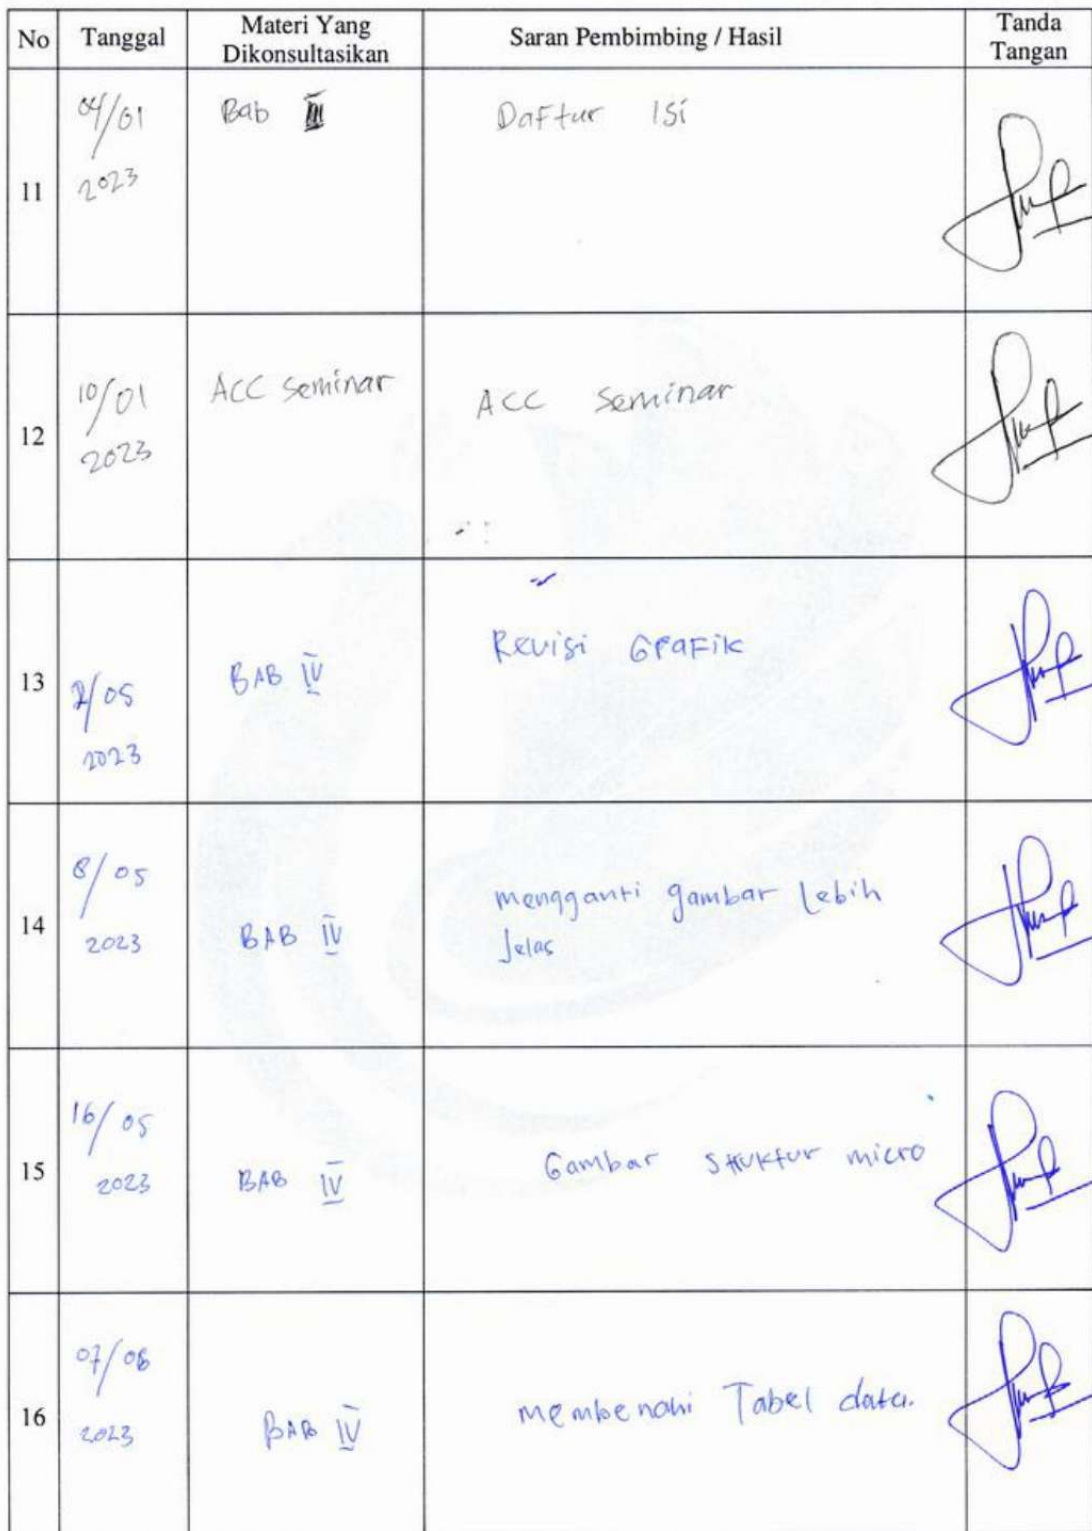 No Tanggal Materi Yang Dikonsultasikan Saran Pembimbing / Hasil Tanda Tangan
11
04/01
2023
Bab III
Daftur Isi
12
10/01
2023
ACC Seminar
ACC Seminar
13
2/05
2023
BAB IV
Revisi Grafik
14
8/05
2023
BAB IV
mengganti gambar Lebih
Jelas
15
16/05
2023
BAB IV
Gambar Struktur micro
16
07/06
2023
BAB IV
membenahi Tabel data.